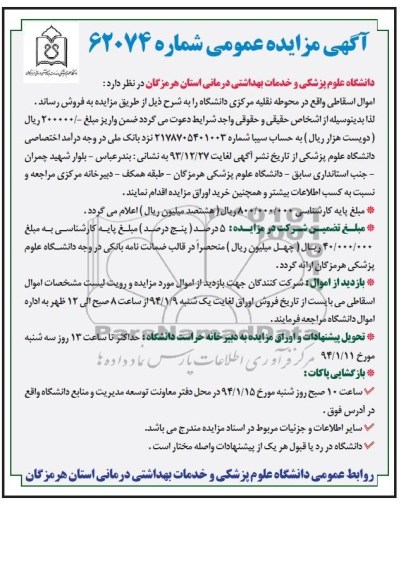 آگهی مزایده عمومی شماره ۶۲۰۷۴
دانشگاه علوم پزشکی و خدمات بهداشتی درمانی استان هرمزگان در نظر دارد :
اموال اسقاطی واقع در محوطه نقلیه مرکزی دانشگاه را به شرح ذیل از طریق مزایده به فروش رساند .
لذا بدینوسیله از اشخاص حقیقی و حقوقی واجد شرایط دعوت می گردد ضمن واریز مبلغ -/۲۰۰۰۰۰ ریال
( دویست هزار ریال ) به حساب سیبا شماره ۲۱۷۸۷۰۵۴۰۱۰۰۳ نزد بانک ملی در وجه درآمد اختصاصی
دانشگاه علوم پزشکی از تاریخ نشر آگهی لغایت ۹۳/۱۲/۲۷ به نشانی : بندرعباس - بلوار شهید چمران
- جنب استانداری سابق - دانشگاه علوم پزشکی هرمزگان - طبقه همکف - دبیرخانه مرکزی مراجعه و
نسبت به کسب اطلاعات بیشتر و همچنین خرید اوراق مزایده اقدام نمایند .
* مبلغ پایه کارشناسی ۸۰۰/۰۰۰/۰۰۰ ریال ( هشتصد میلیون ریال ) اعلام می گردد .
* مبلغ تضمین شرکت در مزایده : ۵ درصد ( پنج درصد ) مبلغ پایه کارشناسی به مبلغ
۴۰/۰۰۰/۰۰۰ ریال ( چهل میلیون ریال ) منحصراً در قالب ضمانت نامه بانکی در وجه دانشگاه علوم
پزشکی هرمزگان ارائه گردد .
* بازدید از اموال : شرکت کنندگان جهت بازدید از اموال مورد مزایده و رویت لیست مشخصات اموال
اسقاطی می بایست از تاریخ فروش اوراق لغایت یک شنبه ۹۴/۱/۹ از ساعت ۸ صبح الی ۱۲ ظهر به اداره
اموال دانشگاه مراجعه فرمایند .
ParsNamadData
* تحویل پیشنهادات و اوراق مزایده به دبیرخانه حراست دانشگاه : حداکثر تا ساعت ۱۳ روز سه شنبه
مورخ ۹۴/۱/۱۱
مرکز فرآوری اطلاعات پارس نماد داده ها
* بازگشایی پاکات :
✓ ساعت ۱۰ صبح روز شنبه مورخ ۹۴/۱/۱۵ در محل دفتر معاونت توسعه مدیریت و منابع دانشگاه واقع
در آدرس فوق .
✓ سایر اطلاعات و جزئیات مربوط در اسناد مزایده مندرج می باشد.
✓ دانشگاه در رد یا قبول هر یک از پیشنهادات واصله مختار است .
روابط عمومی دانشگاه علوم پزشکی و خدمات بهداشتی درمانی استان هرمزگان